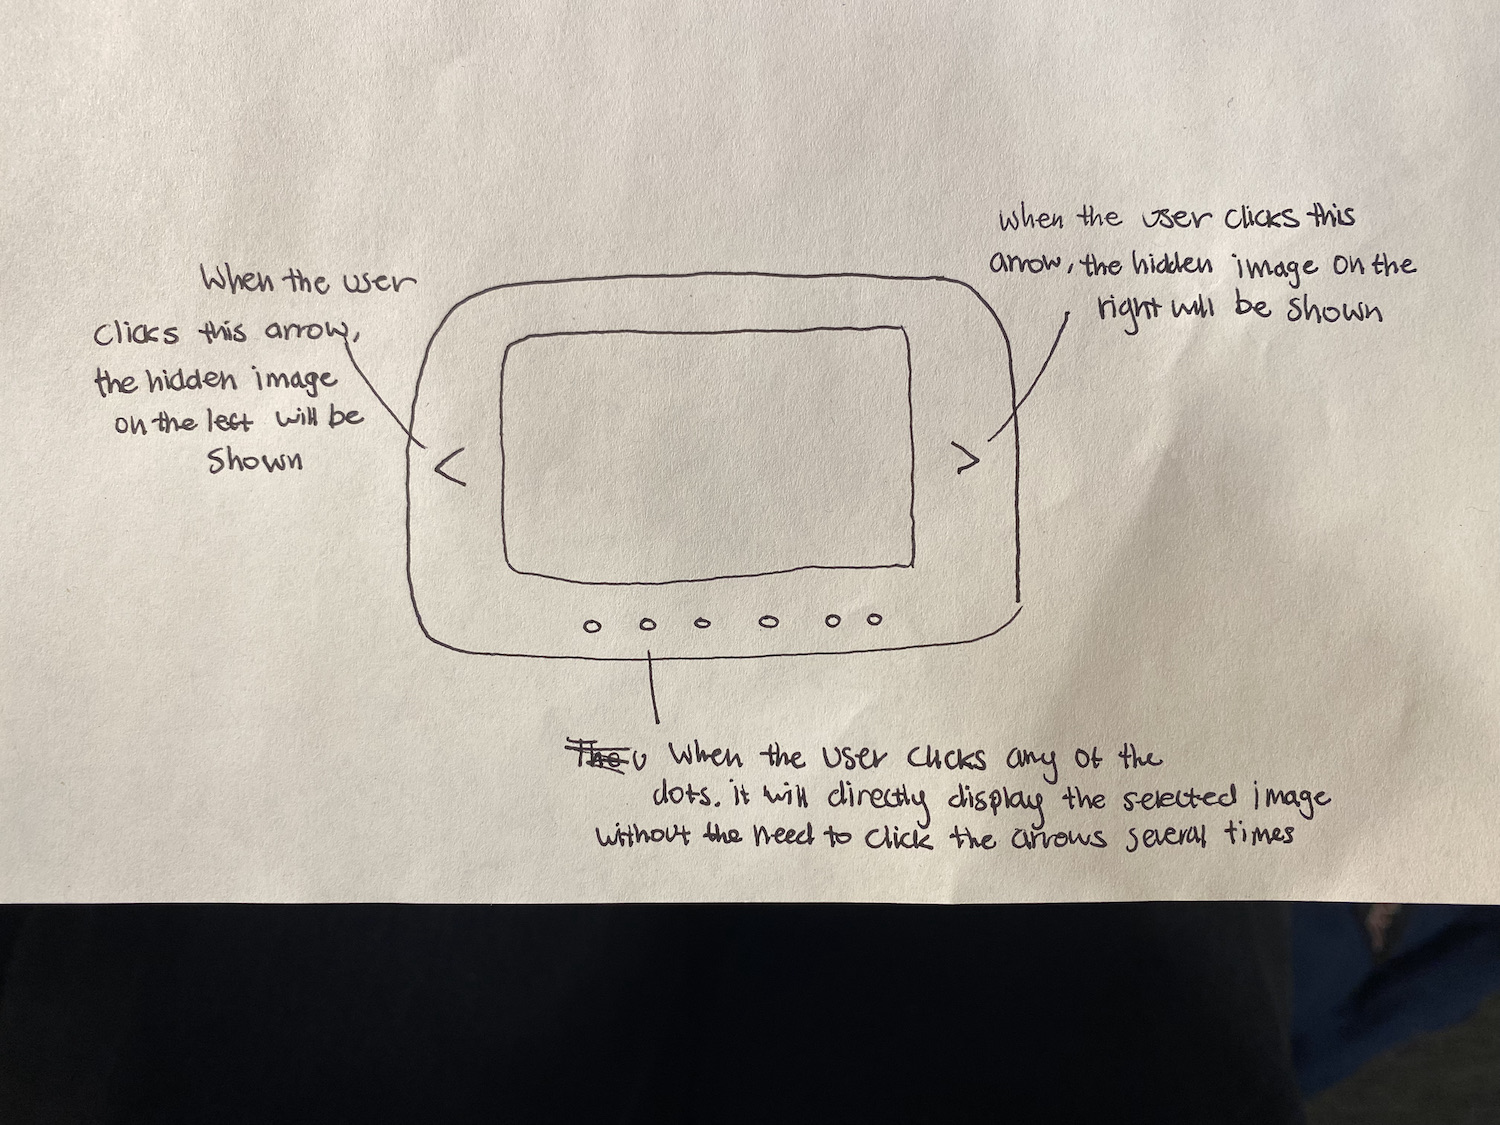 When the user
clicks this arrow,
the hidden image
on the left will be
shown
<
when the user clicks this
arrow, the hidden image on the
right will be shown
>
The u when the user clicks any of the
dots. it will directly display the selected image
without the need to click the arrows several times